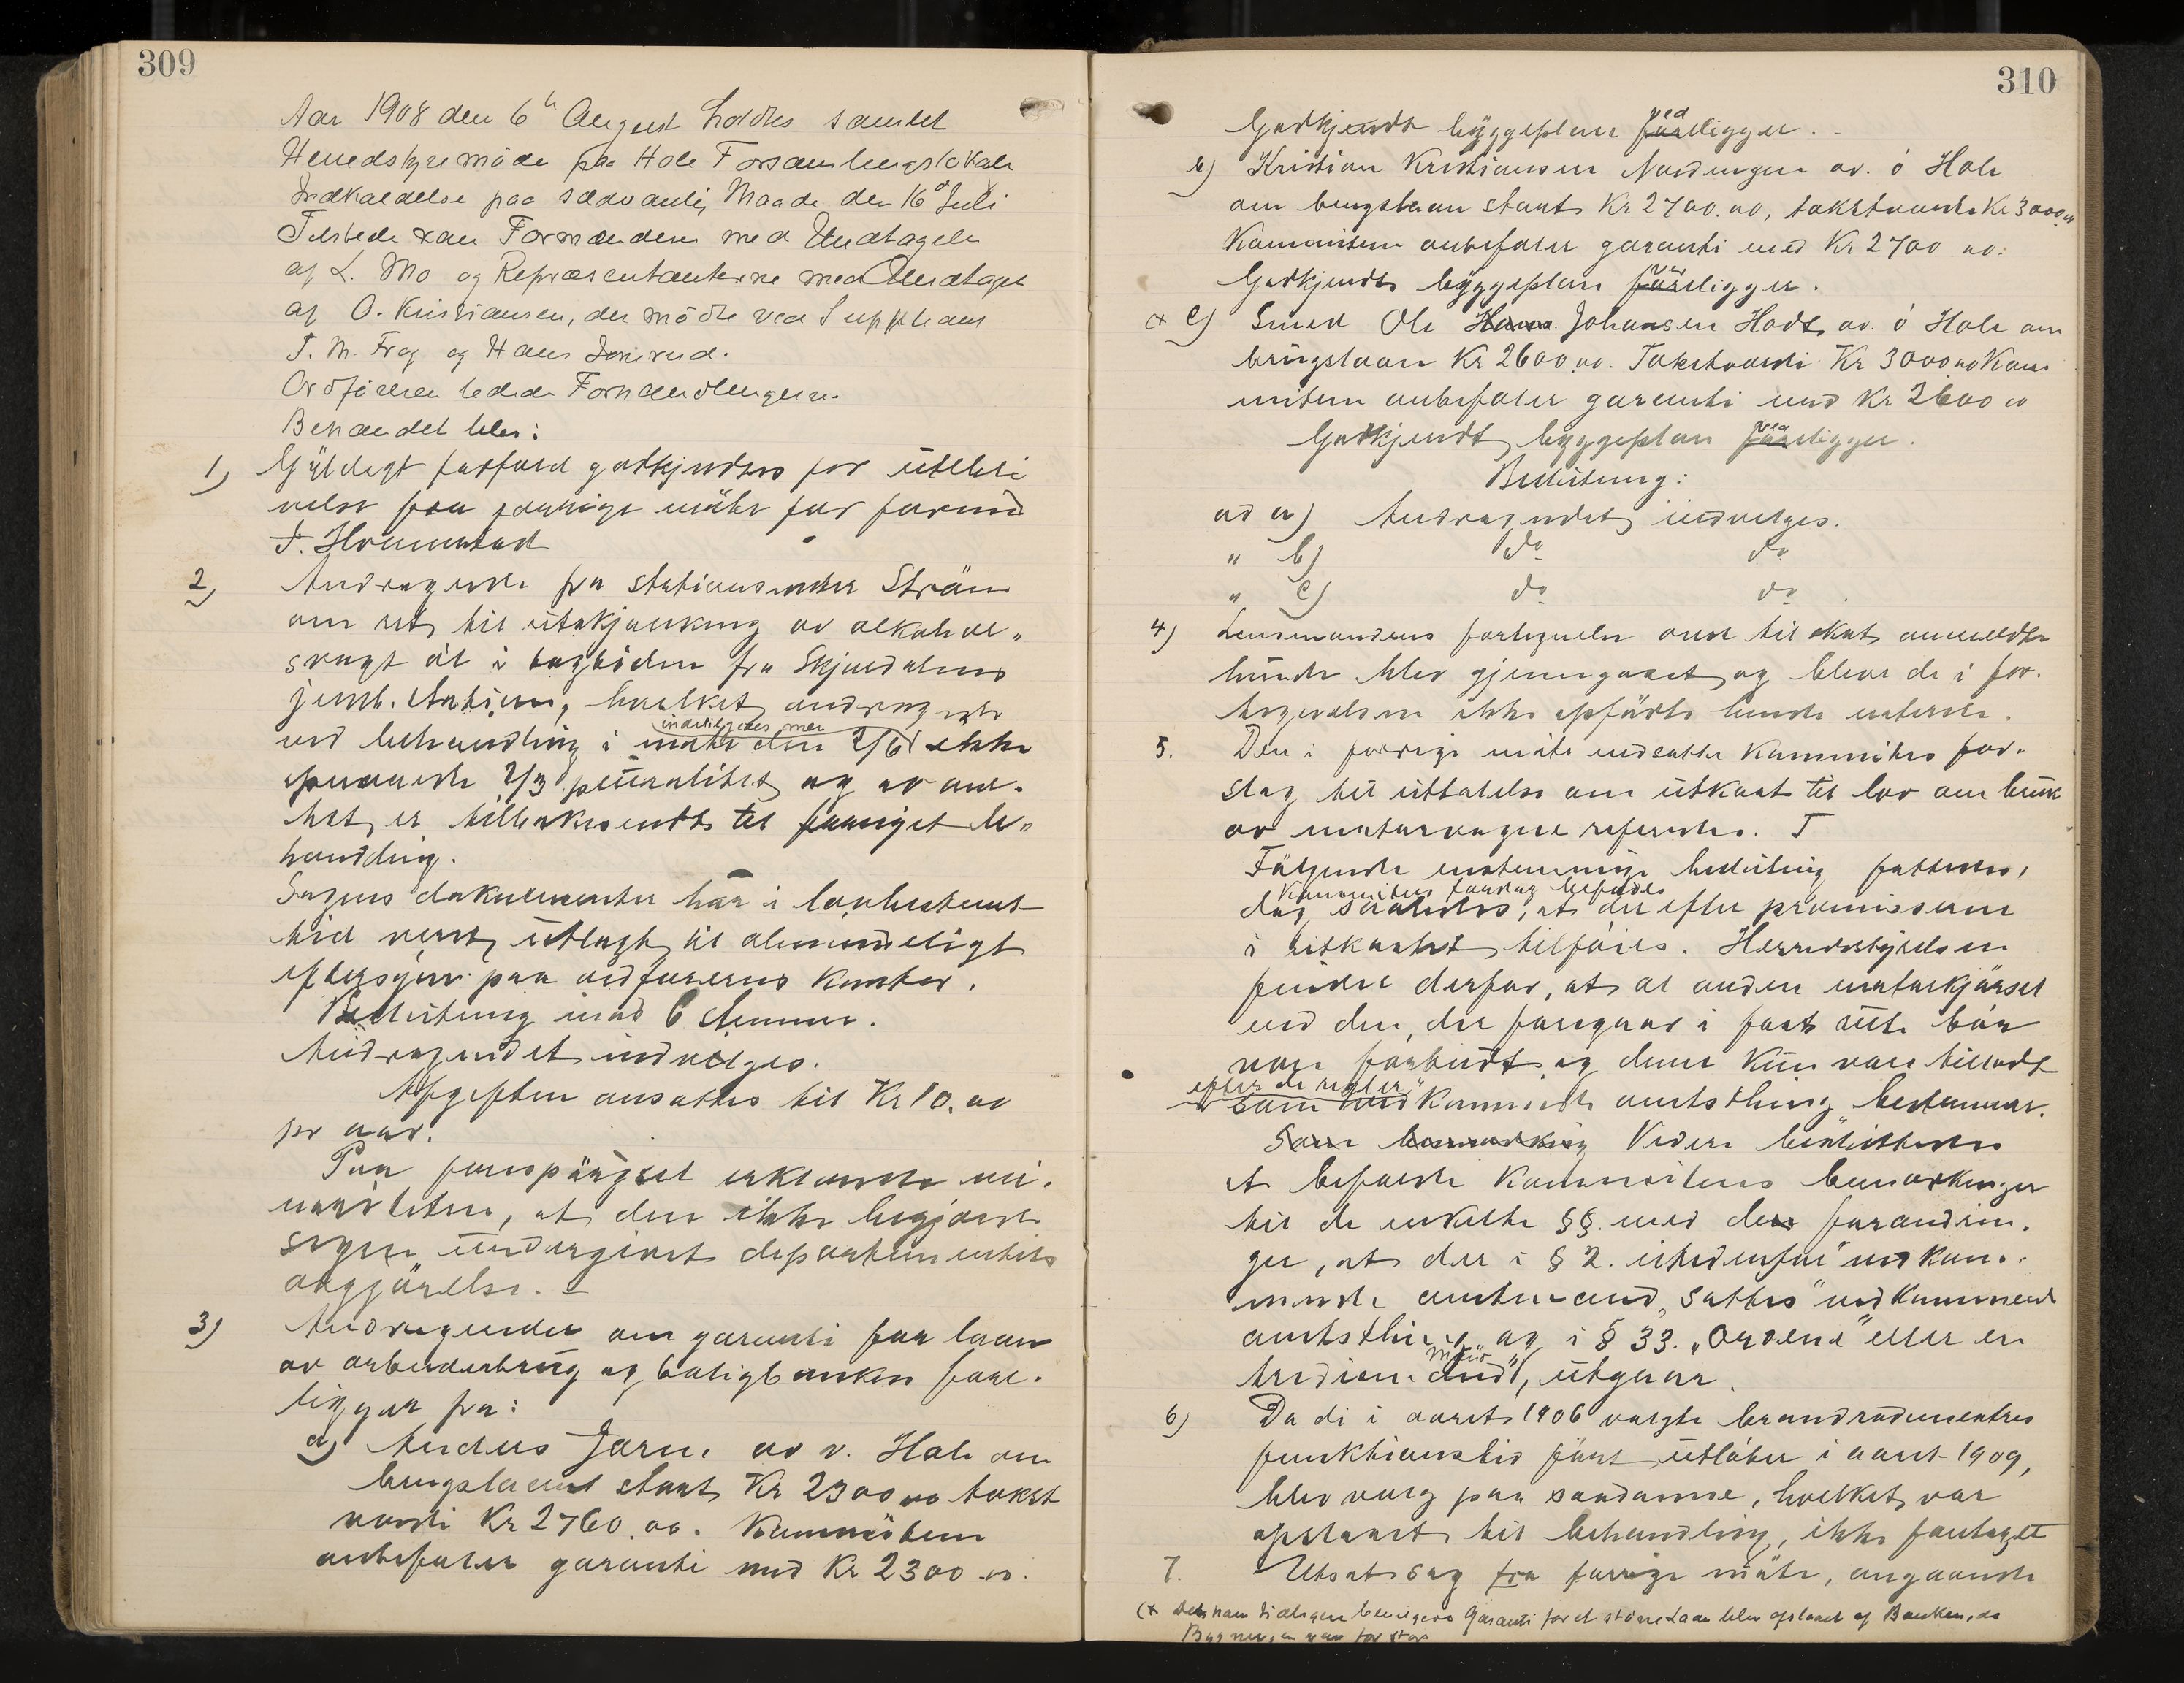 309
Aar 1908 den 6te August holdtes samlet
Herredstyremøde paa Hole Forsamlingslokale
Indkaldelse paa sædvanlig Maade den 16de Juli
Tilstede var Formænderne med Undtagelse
af L. Mo og Repræsentanterne med Undtagelse
af O. Kristiansen, der mødte ved Supplean
T. M. Frog og Hans
Ordføreren ledede Forhandlingerne.
Behandlet blev:
1) Gyldigt forfald godkjendtes for utebli
velse fra forrige møte for formd
F.
2) Andragende fra stationsmester Strøm
om ret til utskjænkning av alkohol„
svagt øl i togtiden fra Skjærdalens
jernb. station, hvilket andragende
indviligedes men
ved behandling i møte den 2/6 ikke
opnaaede 2/3 pluralitet og av am„
tet er tilbakesendt til fornyet be„
handling.
Sagens dokumenter har i lovbestemt
tid været utlagt til almindeligt
eftersyn paa ordførerens kontor.
Beslutning mod 6 stemmer.
Andragendet indvilges.
Afgiften ansattes til Kr 10.00
pr aar.
Paa forespørgsel erklærede mi„
noriteten, at den ikke begjærer
sagen undergivet departementets
avgjørelse. –
3) Andragender om garanti for laan
av arbeiderbrug og boligbanken fore„
ligger fra:
a) Anders av n. Hole om
brugslaan stort Kr 2300 00 takst
værdi Kr 2760.00. Kommiteen
anbefaler garanti med Kr 2300.00.
310
ved
Godkjendt byggeplan foreligger. –
b) Kristian Kristiansen av ø Hole
om brugslaan stort Kr 2700.00, takstværdi Kr 3000.00
Kommiteen anbefaler garanti med Kr 2700 00.
ved
Godkjendt byggeplan foreligger.
(x c) Smed Ole Hans Johansen av ø Hole om
brugslaan Kr 2600.00. Takstværdi Kr 3000.00 Kom
miteen anbefaler garanti med Kr 2600 00
ved
Godkjendt byggeplan foreligger.
Beslutning:
ad a) Andragendet indvilges.
„ b) do do
„ c) do do.
4) Lensmandens fortegnelse over til skat anmeldte
hunde blev gjennemgaaet og blev de i for„
tegnelsen ikke opførte hunde
5. Den i forrige møte nedsatte kommites for„
slag til uttalelse om utkast til lov om bruk
av motorvogne refereredes.
Følgende enstemmige beslutning fattedes,
Kommiteens forslag
dog saaledes, at der efter præmisserne
i utkastet tilføies. Herredstyrelsen
finder derfor, at al anden motorkjørsel
end den, der foregaar i fast rute bør
være forbudt og denne kun være tilladt
efter de regler„
som vedkommende amtsthing bestemmer.
Som bemerkning Videre besluttedes
at befale kommiteens bemærkninger
til de enkelte §§. med den forandrin„
ger, at der i § 2. istedenfor „vedkom„
mende amtmand„ sættes „vedkommende
amtsthing„ og i § 33. „ordene„ eller en
tredie„ utgaar.
6) Da de i aaret 1906 valgte
funktionstid først utløber i aaret 1909,
blev valg paa saadanne, hvilket var
opslaaet til behandling, ikke foretaget
7. Utsat sag fra forrige møte, angaaende
(x Den ham tidligere bevilgede Garanti for et større Laan blev afslaaet af Banken, da
Bygningen var for stor